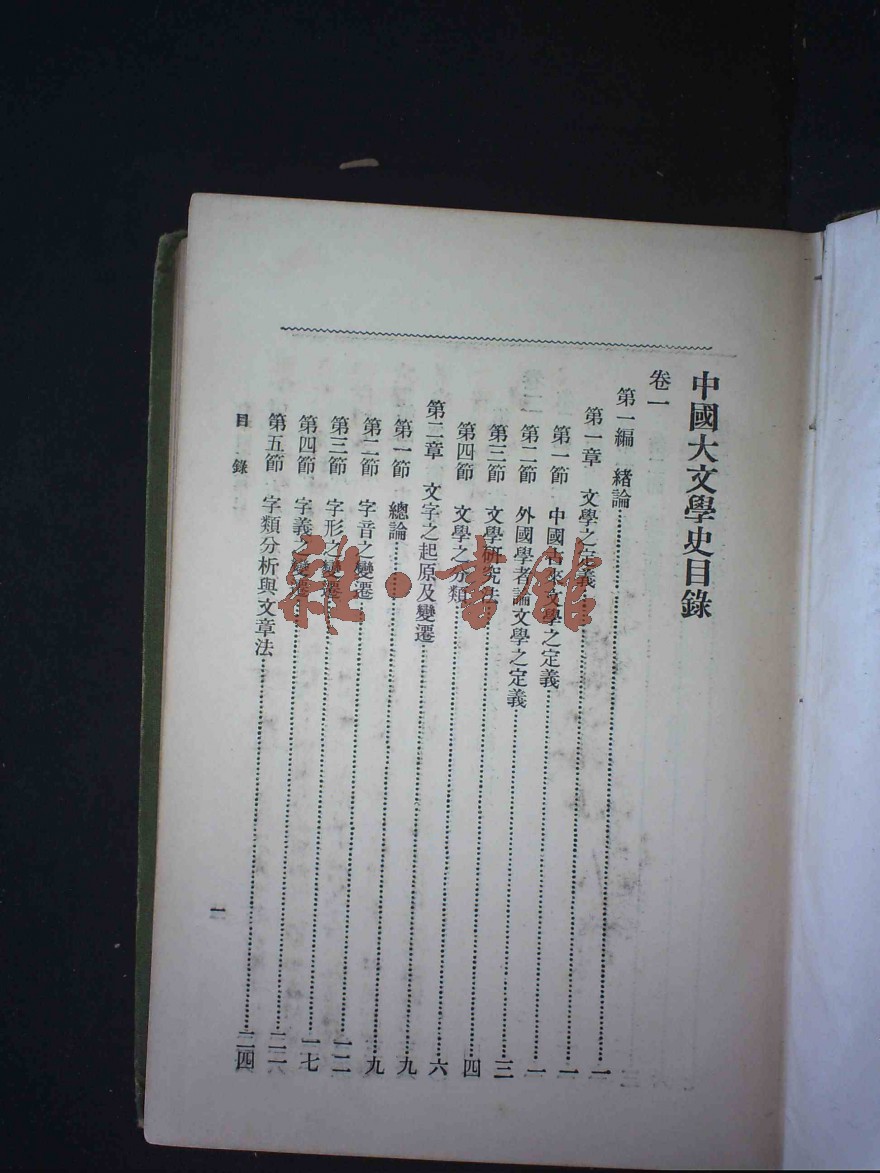 中國大文學史目錄
卷一
第一編 緒論 一
第一章 文學之定義 一
第一節 中國古來文學之定義 一
第二節 外國學者論文學之定義 三
第三節 文學研究法 四
第四節 文學之分類 六
第二章 文字之起原及變遷 九
第一節 總論 九
第二節 字音之變遷 一二
第三節 字形之變遷 一七
第四節 字義之變遷 二二
第五節 字類分析與文章法 二四
目錄
一
雜·書館